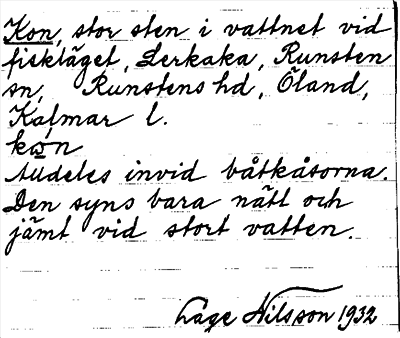 Kon, stor sten i vattnet vid
fiskläget, Lerkaka, Runsten
sn, Runstens hd, Öland,
Kalmar l.
kon
Alldeles invid båtkåsorna.
Den syns bara nätt och
jämt vid stort vatten.
Lage Nilsson 1932